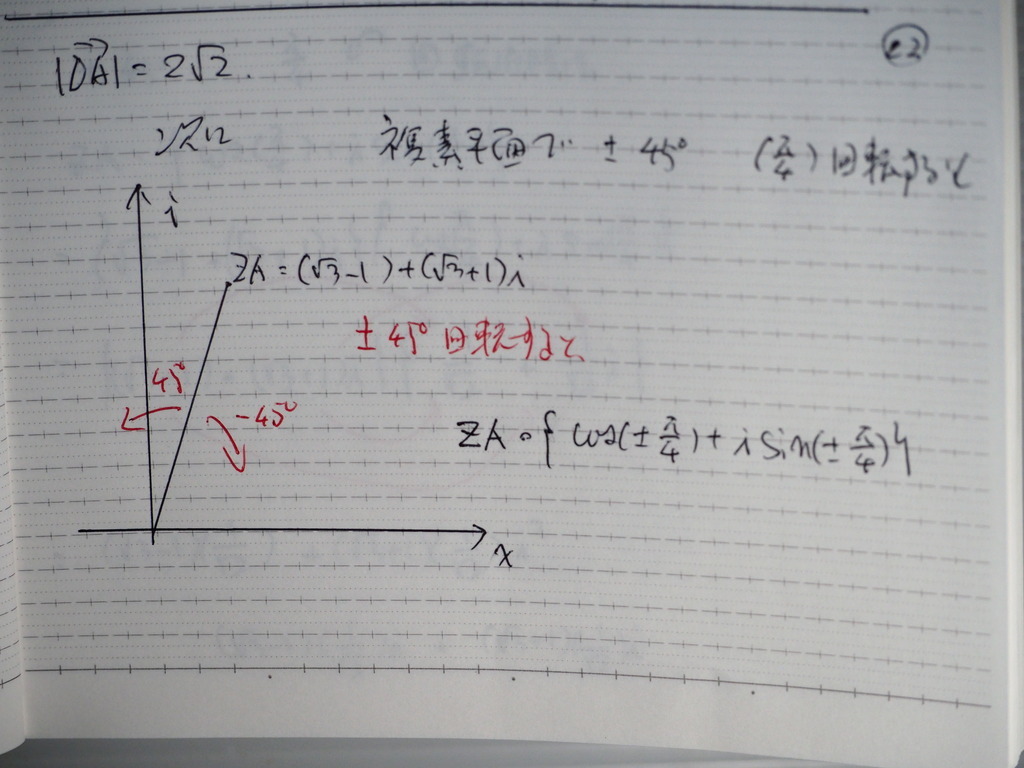 |OA| = 2√2.
②2
次に 複素平面で ± 45° (π/4) 回転すると
i
ZA = (√3-1)+(√3+1)i
± 45° 回転すると
45°
-45°
ZA・{ cos(± π/4) + i sin(± π/4) }
x